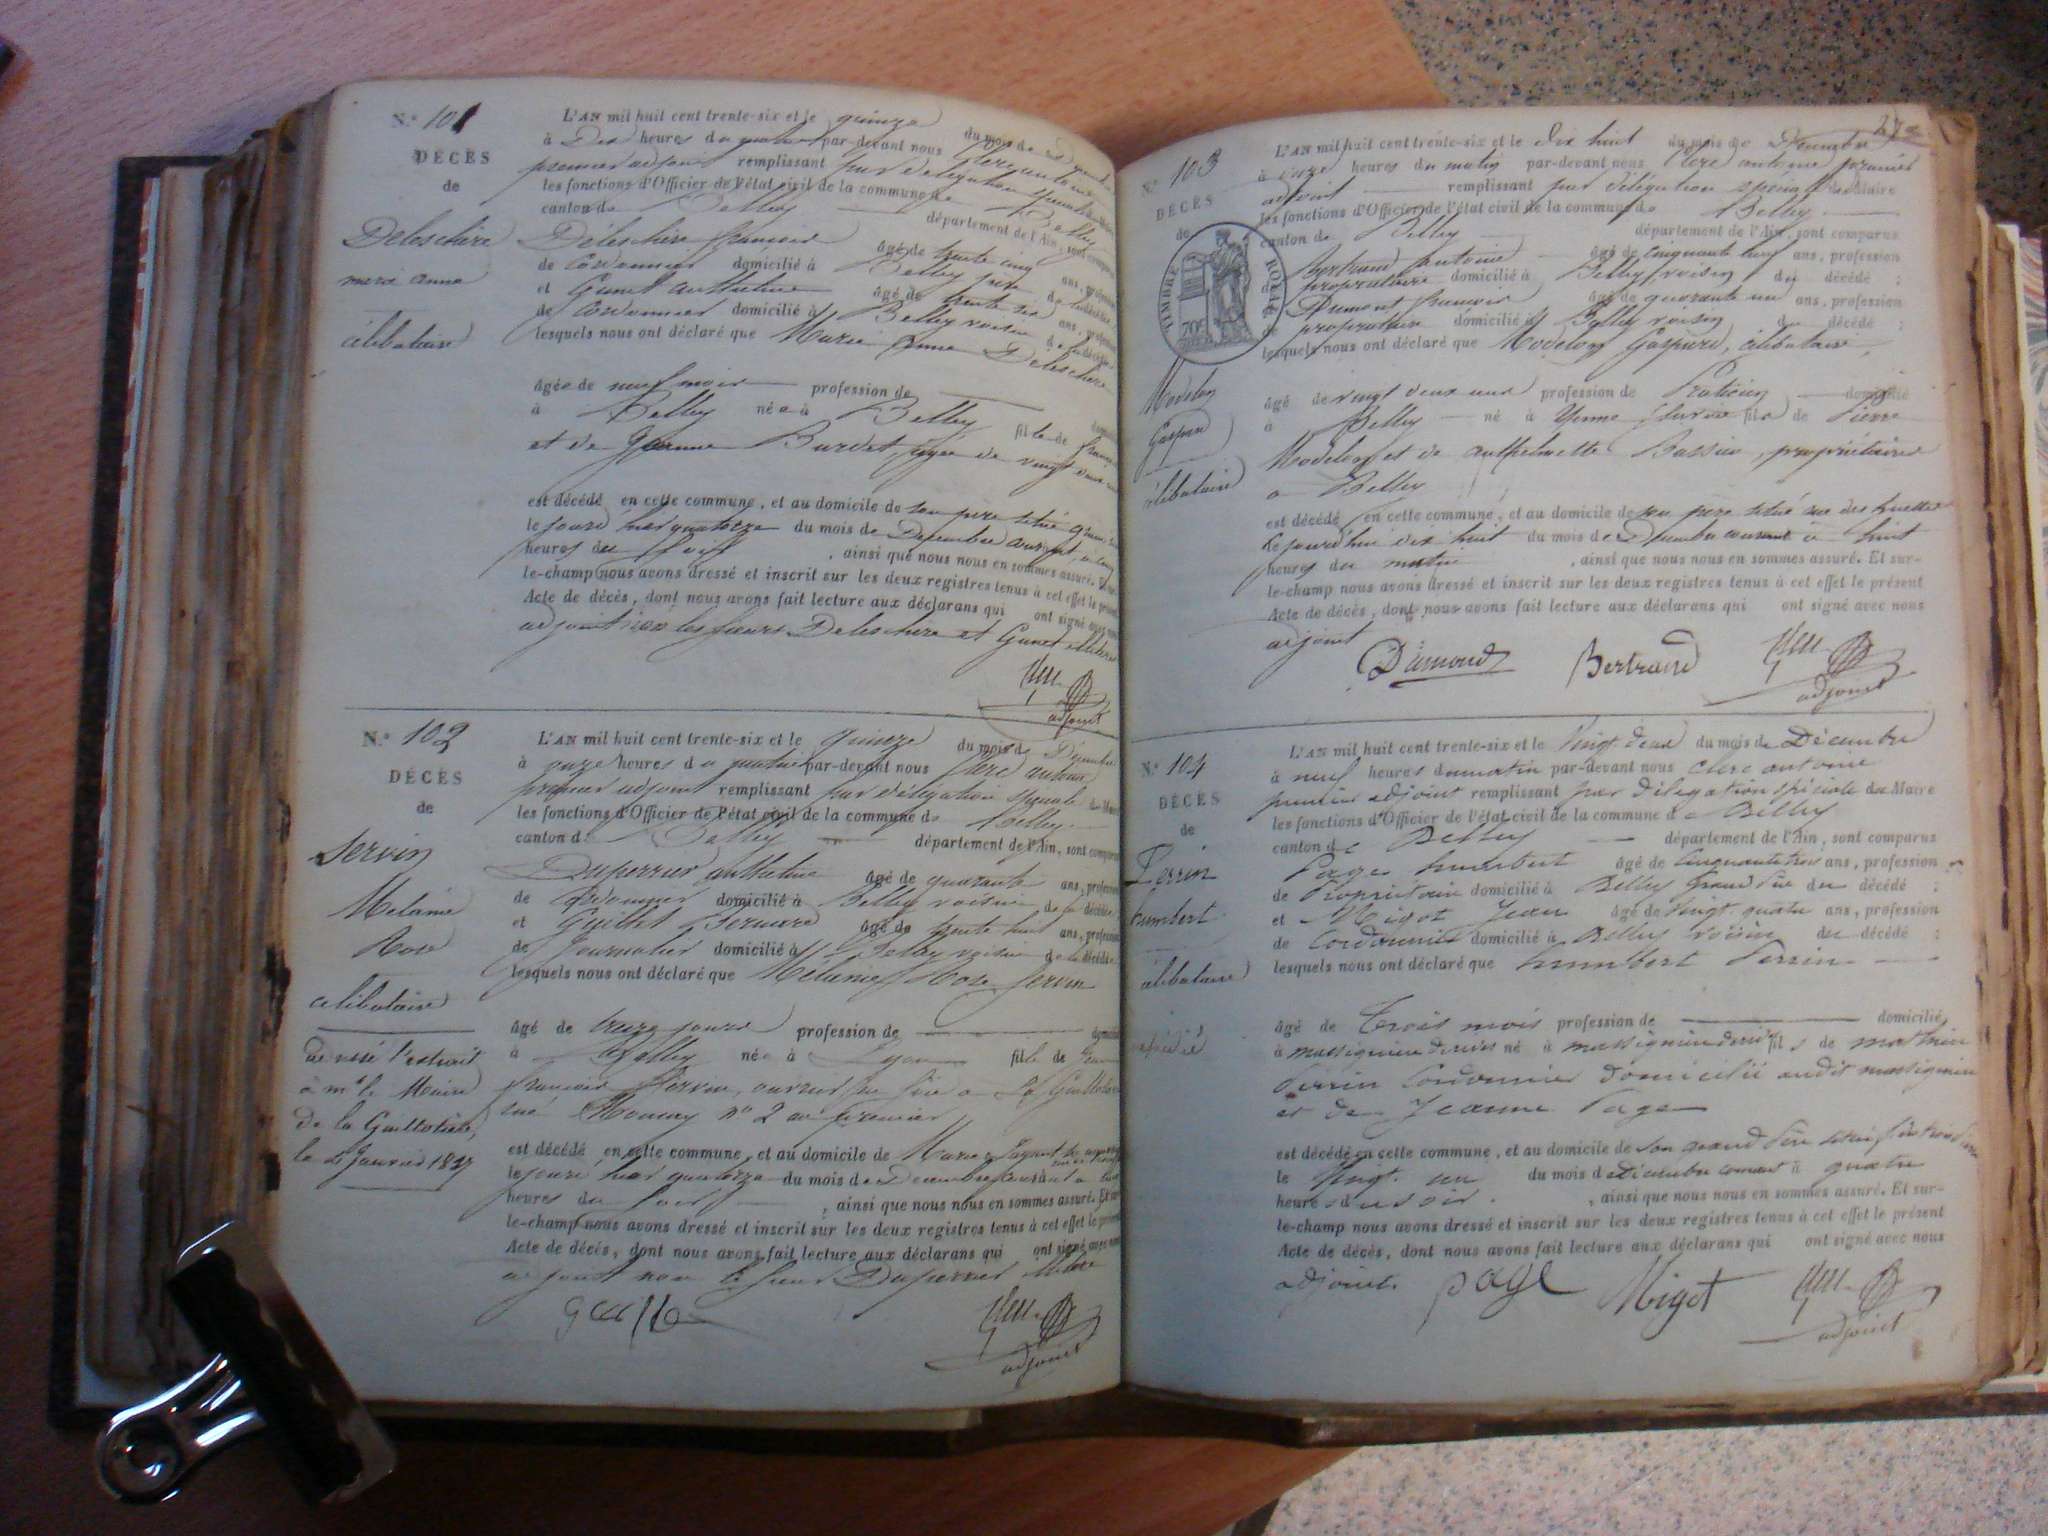 N.° 101
DÉCÈS
de
Deleschère
marie anne
célibataire
L'AN mil huit cent trente-six et le quinze du mois de
à Dix heures du matin par-devant nous Clerc antoine
premier adjoint remplissant par délégation spéciale
les fonctions d'Officier de l'état civil de la commune de Belley
canton de Belley département de l'Ain, sont comparus
Deleschère françois âgé de trente cinq ans, profession
de Cordonnier domicilié à Belley père de la décédée
et Gunet anthelme âgé de trente six ans, profession
de Cordonnier domicilié à Belley voisin de la décédée
lesquels nous ont déclaré que Marie Anne Deleschère
âgée de neuf mois profession de
à Belley née à Belley fille de
et de Jeanne Burdet, âgée de vingt deux
est décédé en cette commune, et au domicile de son père situé
le jourd'hier quatorze du mois de Décembre courant, à
heures du soir, ainsi que nous nous en sommes assuré. Et sur-
le-champ nous avons dressé et inscrit sur les deux registres tenus à cet effet le présent
Acte de décès, dont nous avons fait lecture aux déclarans qui ont signé avec nous
adjoint non les sieurs Deleschère et Gunet illitéré
adjoint
N.° 102
DÉCÈS
de
Servin
Mélanie
Rose
célibataire
adressé l'extrait
à mr le Maire
de la Guillotière,
le 2 janvier 1837
L'AN mil huit cent trente-six et le quinze du mois de Décembre
à onze heures du matin par-devant nous Clerc antoine
premier adjoint remplissant par délégation spéciale du Maire
les fonctions d'Officier de l'état civil de la commune de Belley
canton de Belley département de l'Ain, sont comparus
Duperrier anthelme âgé de quarante ans, profession
de Cordonnier domicilié à Belley voisin de la décédée
et Guillet Bernard âgé de trente huit ans, profession
de Journalier domicilié à Belley voisin de la décédée
lesquels nous ont déclaré que Mélanie Rose Servin
âgé de treize jours profession de
à Belley née à Lyon fille de
françois Servin, ouvrier en soie a La Guillotière
rue Moncey n° 2 au premier
est décédé en cette commune, et au domicile de Marie
le jourd'hier quatorze du mois de Décembre courant à
heures du soir, ainsi que nous nous en sommes assuré. Et sur-
le-champ nous avons dressé et inscrit sur les deux registres tenus à cet effet le présent
Acte de décès, dont nous avons fait lecture aux déclarans qui ont signé avec nous
adjoint non le sieur Duperrier illitéré
adjoint
N.° 103
DÉCÈS
de
TIMBRE ROYAL
70c
Modelon
Gaspard
célibataire
L'AN mil huit cent trente-six et le dix huit du mois de Décembre
à onze heures du matin par-devant nous Clerc antoine premier
adjoint remplissant par délégation spéciale du Maire
les fonctions d'Officier de l'état civil de la commune de Belley
canton de Belley département de l'Ain, sont comparus
Bertrand Antoine âgé de cinquante neuf ans, profession
de propriétaire domicilié à Belley voisin du décédé ;
Dumont françois âgé de quarante un ans, profession
de propriétaire domicilié à Belley voisin du décédé ;
lesquels nous ont déclaré que Modelon Gaspard, célibataire,
âgé de vingt deux ans profession de Praticien domicilié
à Belley né à Yenne Savoie fils de Pierre
Modelon et de anthelmette Bassin, propriétaires
a Belley
est décédé en cette commune, et au domicile de son père situé rue des
Le jourd'hui dix huit du mois de Décembre courant à huit
heures du matin, ainsi que nous nous en sommes assuré. Et sur-
le-champ nous avons dressé et inscrit sur les deux registres tenus à cet effet le présent
Acte de décès, dont nous avons fait lecture aux déclarans qui ont signé avec nous
adjoint
Dumond Bertrand
adjoint
N.° 104
DÉCÈS
de
Perrin
humbert
célibataire
expédié
L'AN mil huit cent trente-six et le Vingt-deux du mois de Décembre
à neuf heures du matin par-devant nous clerc antoine
premier adjoint remplissant par délégation spéciale du Maire
les fonctions d'Officier de l'état civil de la commune de Belley
canton de Belley département de l'Ain, sont comparus
Page humbert âgé de Cinquante trois ans, profession
de Propriétaire domicilié à Belley Grand père du décédé ;
et Migot Jean âgé de vingt-quatre ans, profession
de Cordonnier domicilié à Belley voisin du décédé ;
lesquels nous ont déclaré que humbert Perrin
âgé de Trois mois profession de domicilié
à massignieu derives né à massignieu derives fils de mathieu
Perrin Cordonnier domicilié audit massignieu
et de Jeanne Page
est décédé en cette commune, et au domicile de son grand père situé
le Vingt-un du mois de décembre courant à quatre
heures du soir, ainsi que nous nous en sommes assuré. Et sur-
le-champ nous avons dressé et inscrit sur les deux registres tenus à cet effet le présent
Acte de décès, dont nous avons fait lecture aux déclarans qui ont signé avec nous
adjoint. page Migot
adjoint